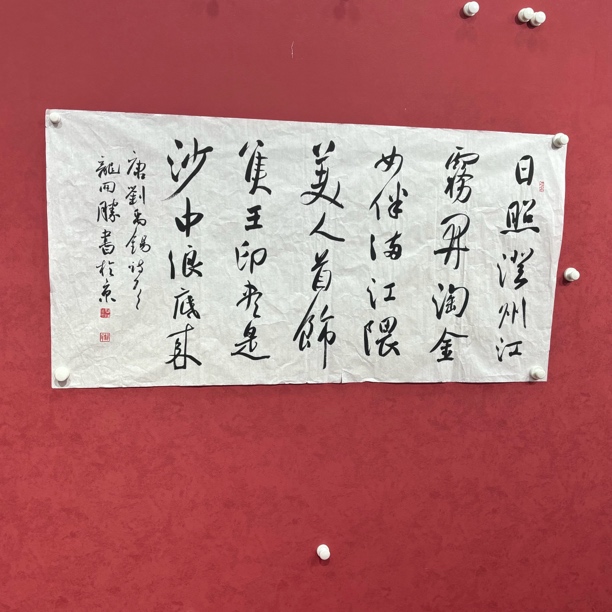 日照澄州江
霧開淘金
女伴滿江隈
美人首飾
侯王印盡是
沙中浪底來
唐劉禹錫詩
龍勝書於京